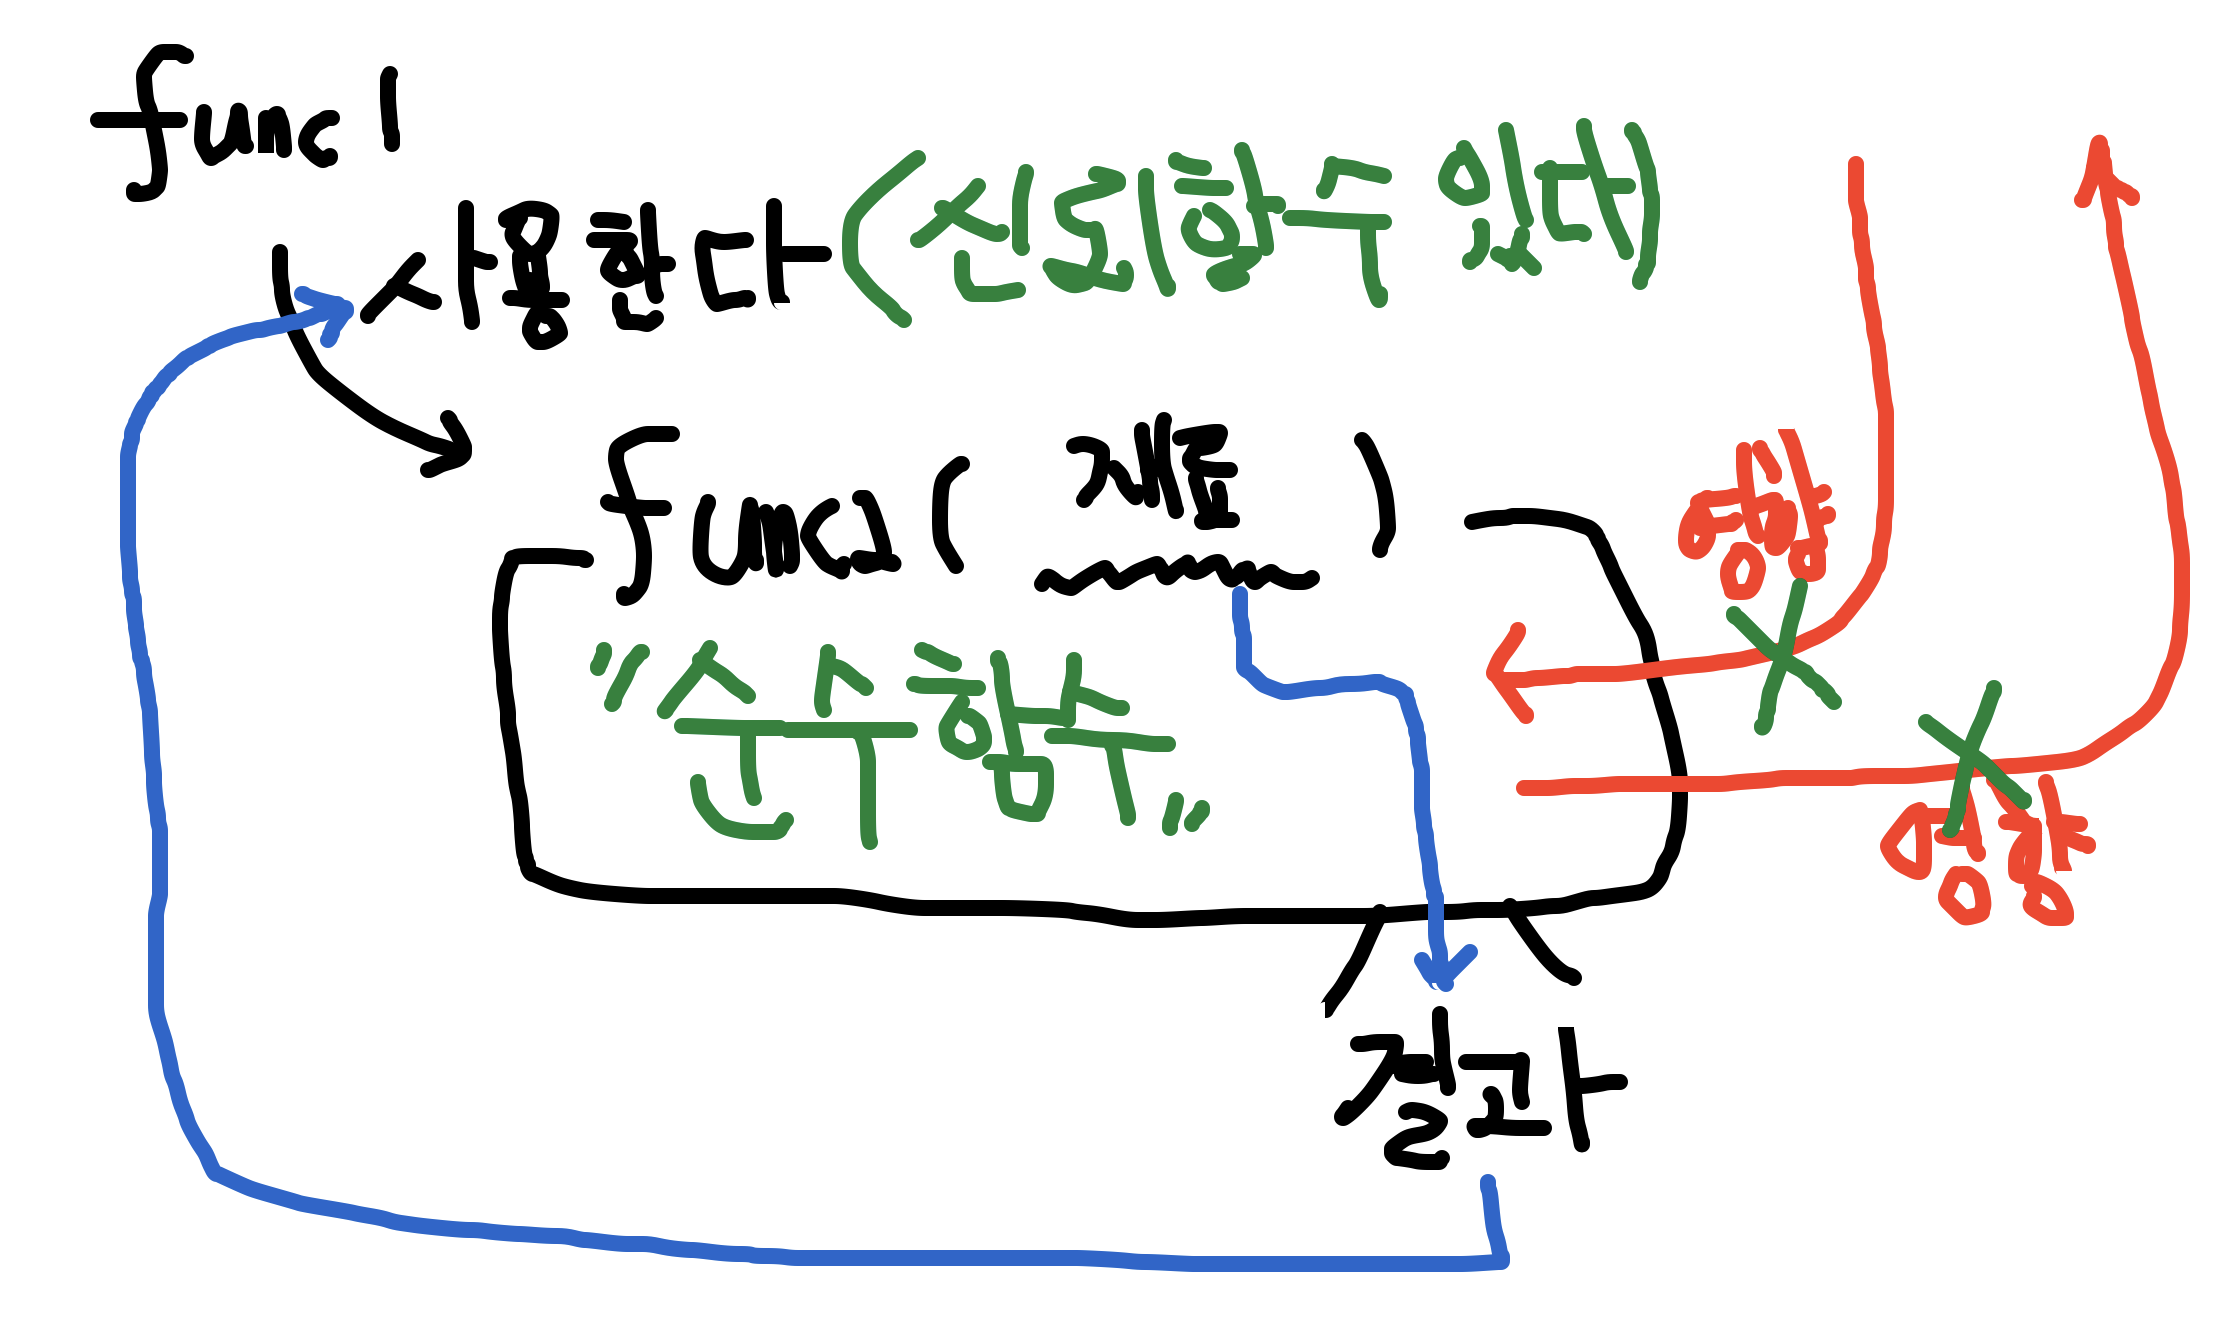 func1
사용한다 (신뢰할 수 있다)
func2 ( 재료 )
영향
"순수 함수"
영향
결과